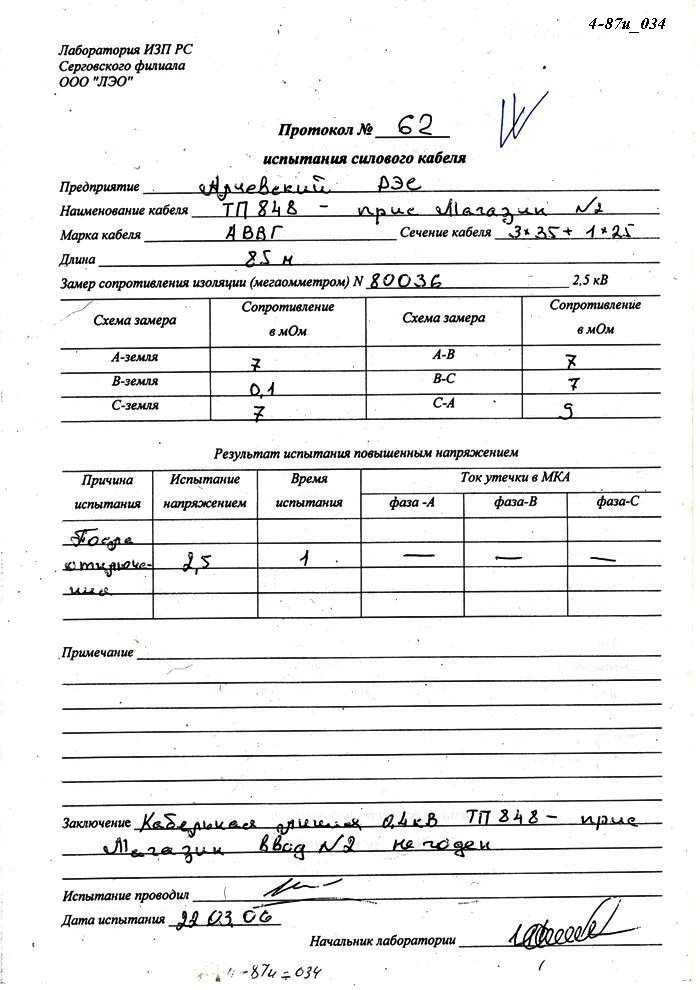 4-87и_034
Лаборатория ИЗП РС
Серговского филиала
ООО "ЛЭО"
Протокол № 62
испытания силового кабеля
Предприятие Алчевский РЭС
Наименование кабеля ТП 848 - прис Магазин №2
Марка кабеля АВВГ Сечение кабеля 3*35 + 1*25
Длина 85 м
Замер сопротивления изоляции (мегаомметром) N 80036 2,5 кВ
Схема замера Сопротивление в мОм Схема замера Сопротивление в мОм
А-земля 7 А-В 7
В-земля 0,1 В-С 7
С-земля 7 С-А 9
Результат испытания повышенным напряжением
Причина испытания Испытание напряжением Время испытания Ток утечки в МКА
фаза -А фаза-В фаза-С
После
отключе- 2,5 1 — — —
ния
Примечание
Заключение Кабельная линия 0,4кВ ТП 848 - прис
Магазин Ввод №2 не годен
Испытание проводил
Дата испытания 22 03 06
Начальник лаборатории
4-87и-034